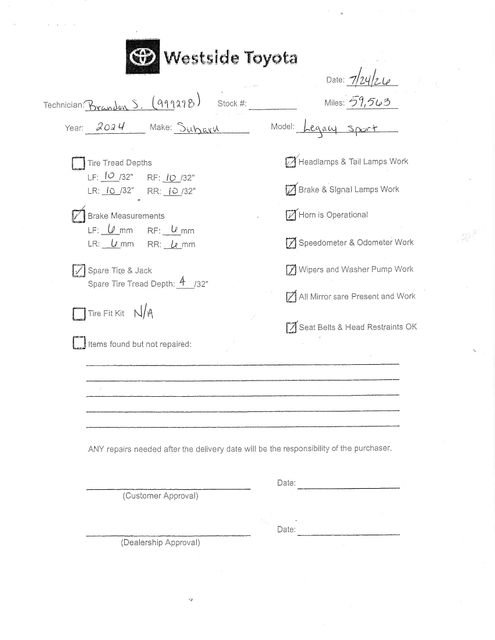 Westside Toyota
Date: 7/24/26
Technician: Brandon S. (999278) Stock #:
Miles: 59,563
Year: 2024 Make: Subaru Model: Legacy Sport
Tire Tread Depths
LF: 10 /32" RF: 10 /32"
LR: 10 /32" RR: 10 /32"
Brake Measurements
LF: 6 mm RF: 6 mm
LR: 6 mm RR: 6 mm
Spare Tire & Jack
Spare Tire Tread Depth: 4 /32"
Tire Fit Kit N/A
Items found but not repaired:
Headlamps & Tail Lamps Work
Brake & Signal Lamps Work
Horn is Operational
Speedometer & Odometer Work
Wipers and Washer Pump Work
All Mirror sare Present and Work
Seat Belts & Head Restraints OK
ANY repairs needed after the delivery date will be the responsibility of the purchaser.
Date:
(Customer Approval)
Date:
(Dealership Approval)